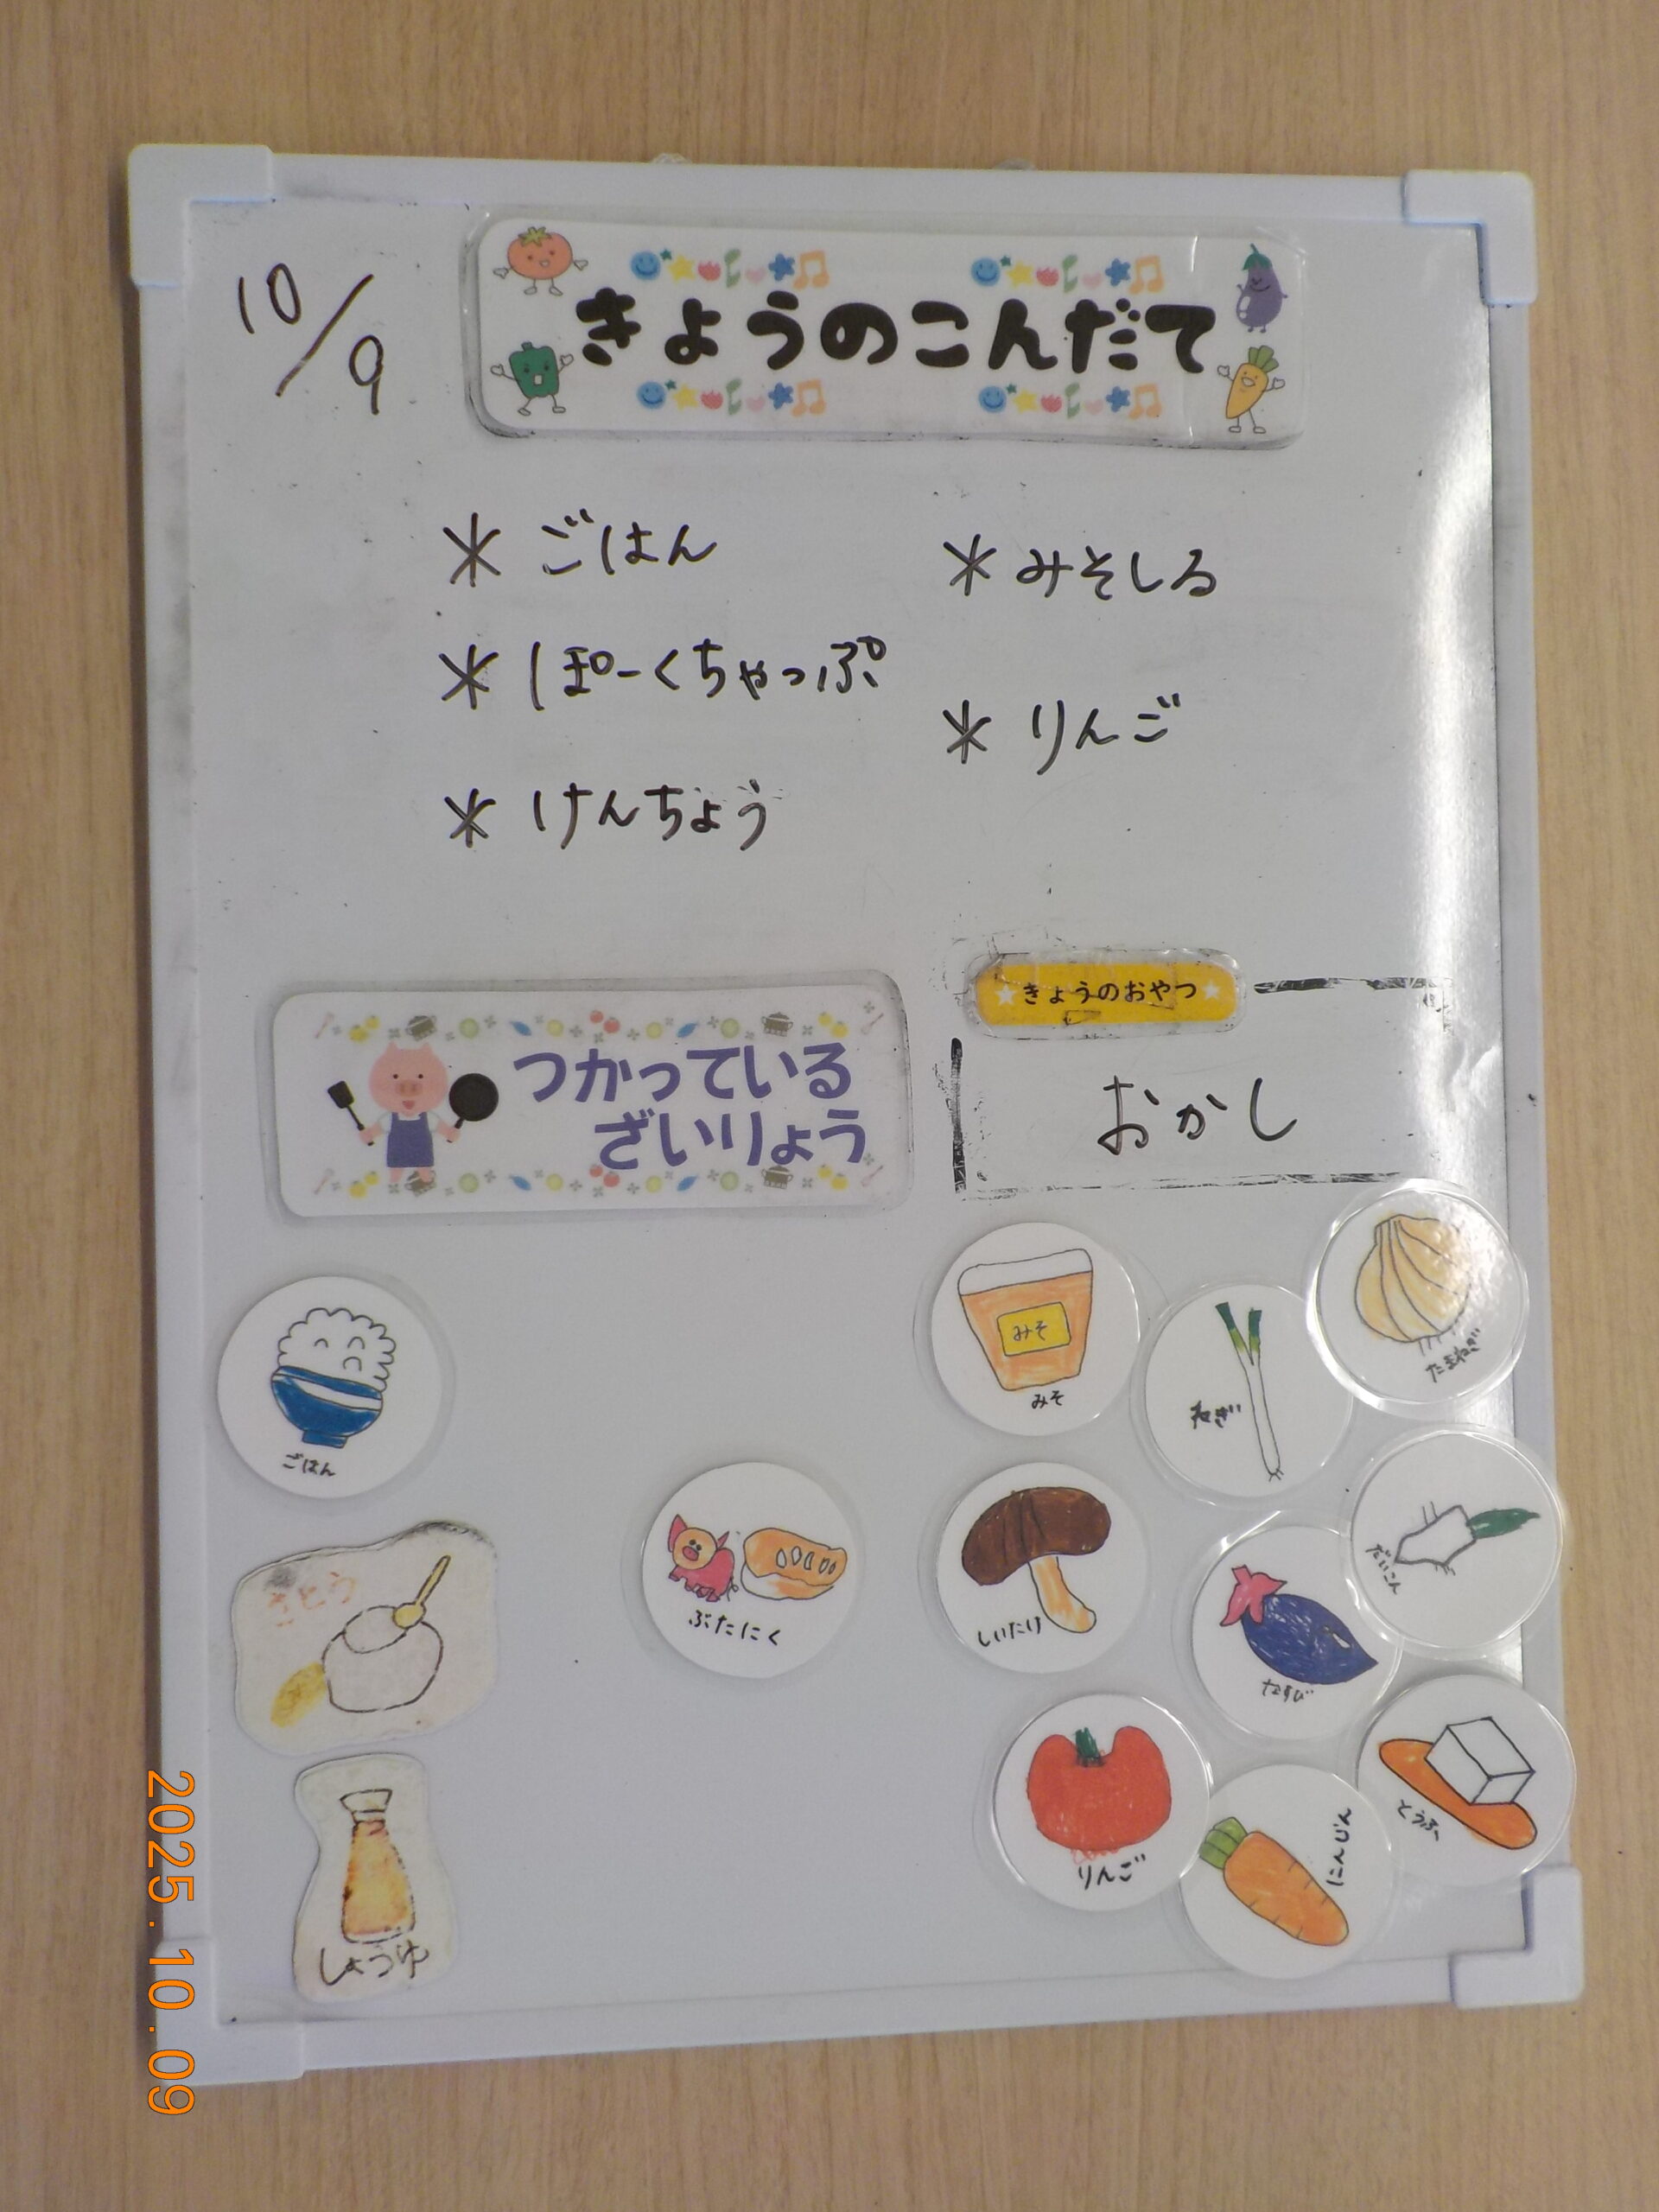 10/9
きょうのこんだて
* ごはん
* ぽーくちゃっぷ
* けんちょう
* みそしる
* りんご
つかっている
ざいりょう
きょうのおやつ
おかし
ごはん
さとう
しょうゆ
ぶたにく
みそ
みそ
ねぎ
たまねぎ
しいたけ
なすび
だいこん
りんご
にんじん
とうふ
2025.10.09